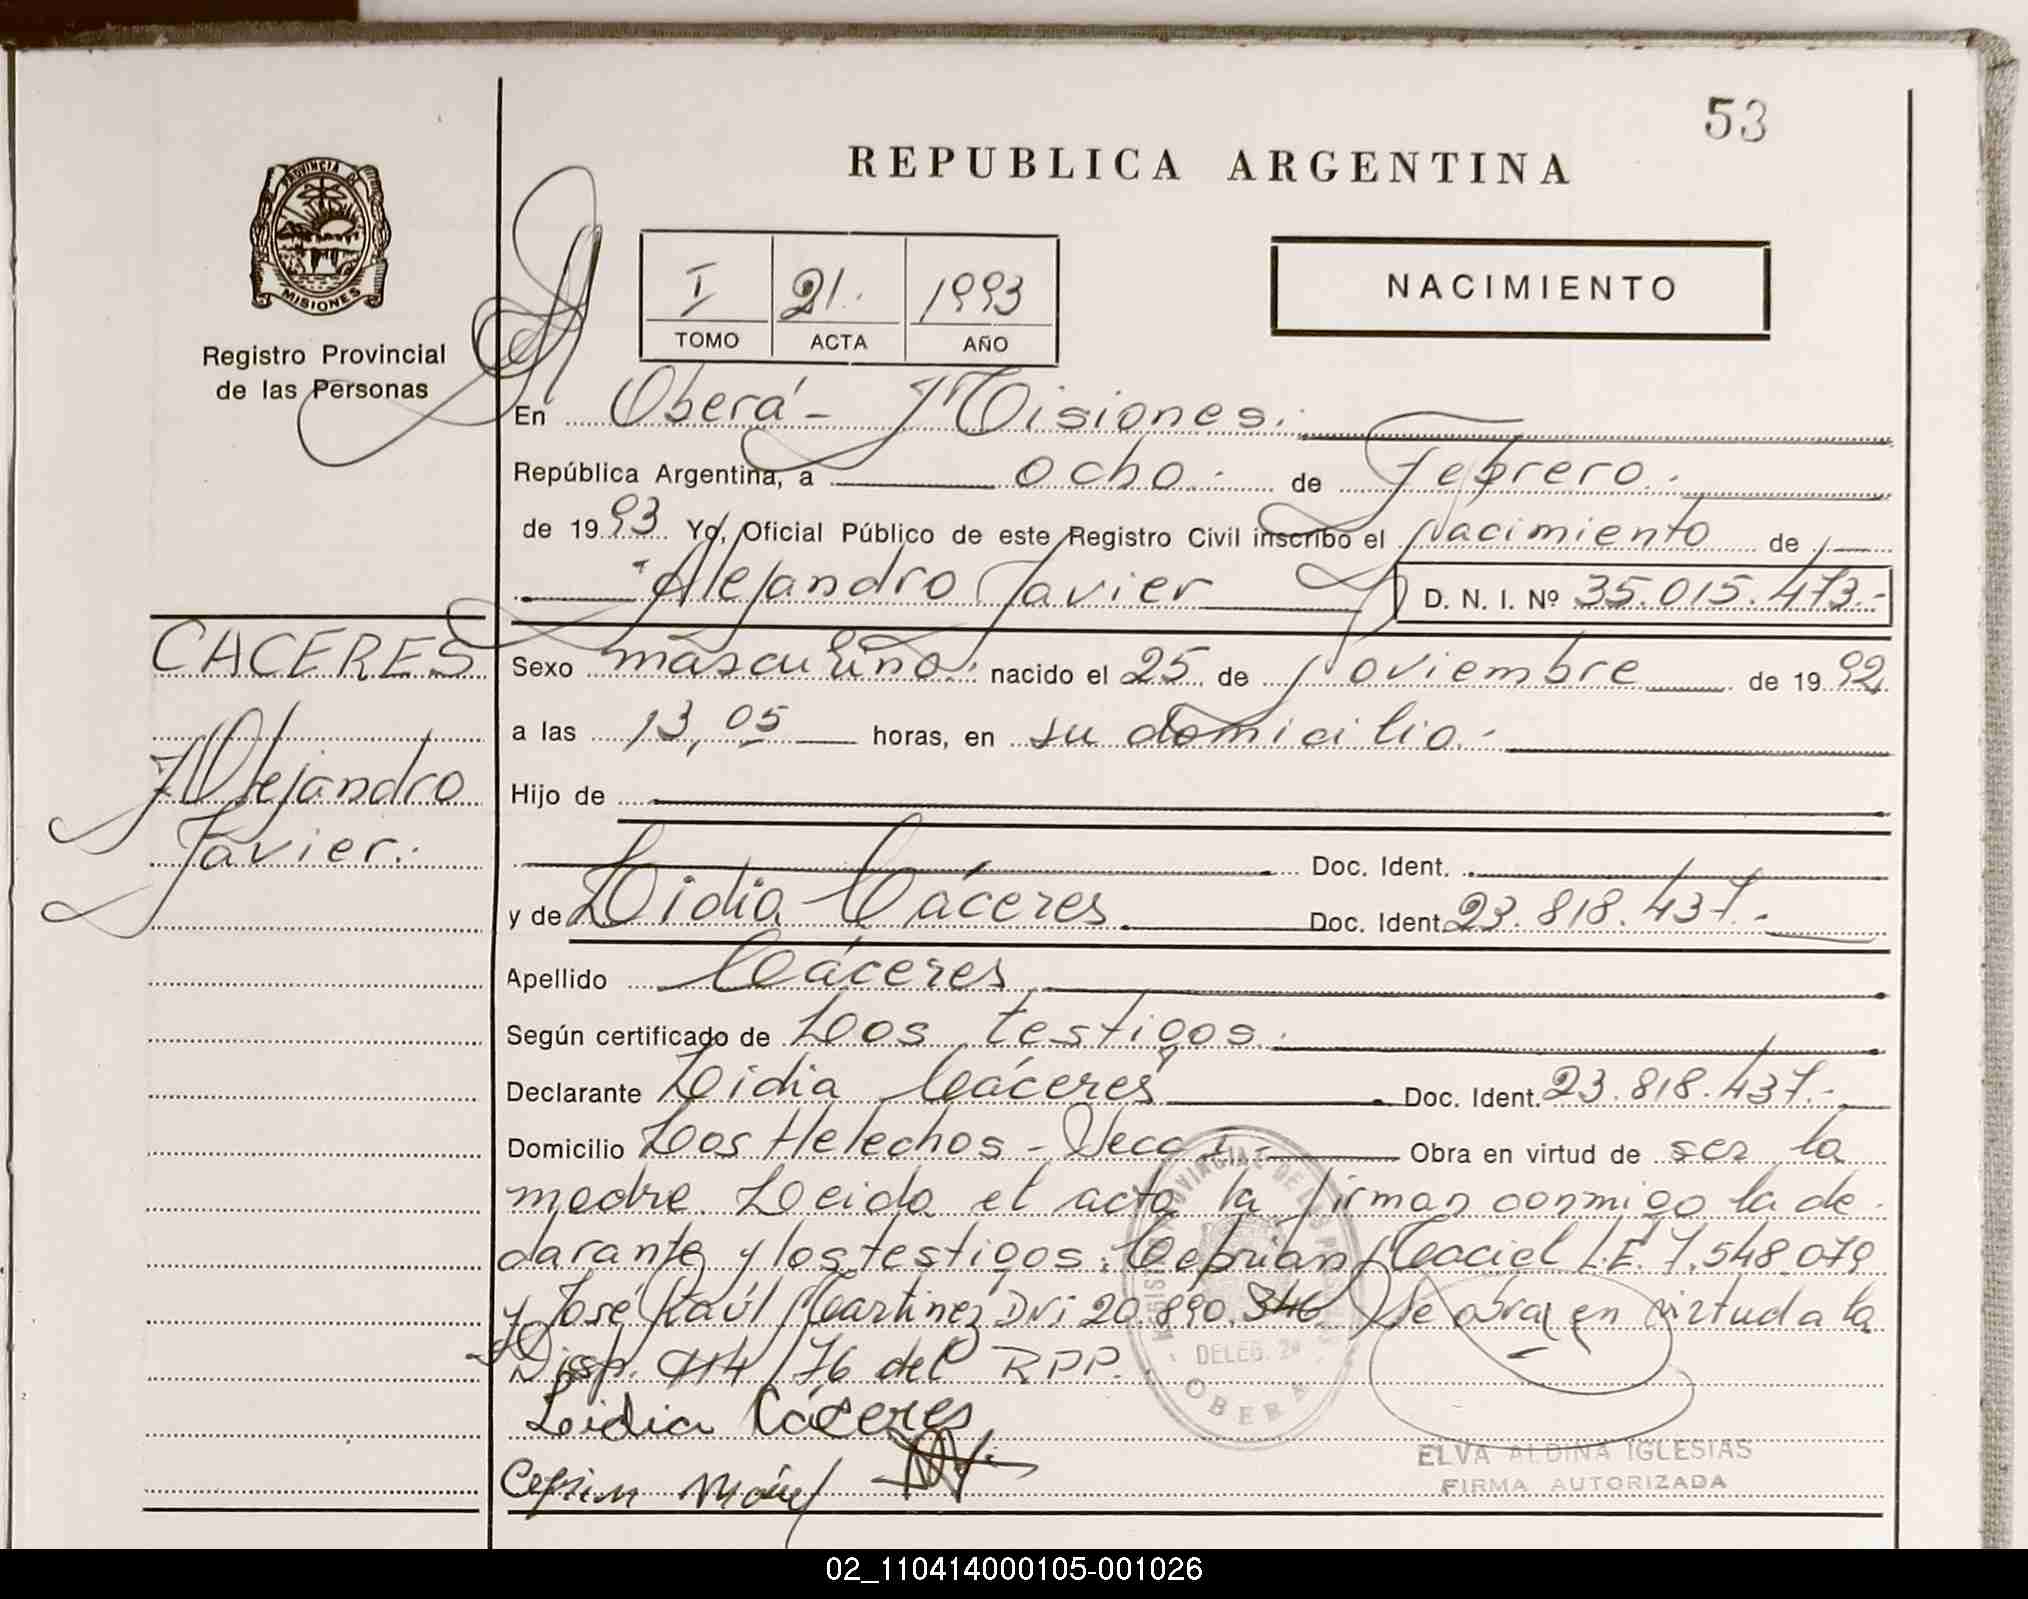 53
REPUBLICA ARGENTINA
PROVINCIA DE
MISIONES
Registro Provincial
de las Personas
I 21. 1993
TOMO ACTA AÑO
NACIMIENTO
En Oberá - Misiones.
República Argentina, a ocho. de Febrero.
de 1993 Yo, Oficial Público de este Registro Civil inscribo el nacimiento de
Alejandro Javier D. N. I. Nº 35.015.473.-
CACERES
Alejandro
Javier.
Sexo masculino. nacido el 25 de Noviembre de 1992
a las 13,05 horas, en su domicilio.-
Hijo de
Doc. Ident.
y de Lidia Cáceres Doc. Ident. 23.818.437.-
Apellido Cáceres
Según certificado de Dos testigos.
Declarante Lidia Cáceres Doc. Ident. 23.818.437.-
Domicilio Los Helechos - Obra en virtud de ser la
madre. Leida el acta la firman conmigo la de-
clarante y los testigos: Ceprian Maciel L.E. 7.548.079
y José Raúl Martinez DNI 20.890.346 Se obra en virtud a la
Disp. 414/76 del RPP.
Lidia Cáceres
DELEG. 2ª
OBERA
ELVA ALDINA IGLESIAS
FIRMA AUTORIZADA
02_110414000105-001026